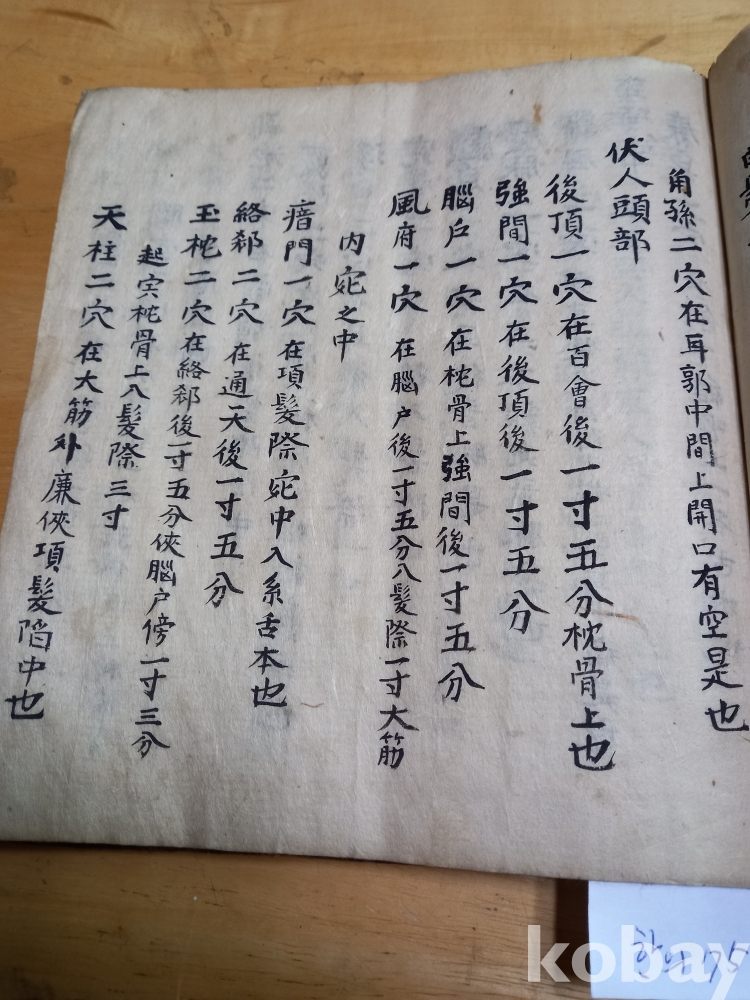 角孫二穴在耳郭中間上開口有空是也
伏人頭部
後頂一穴在百會後一寸五分枕骨上也
強間一穴在後頂後一寸五分
腦戶一穴在枕骨上強間後一寸五分
風府一穴在腦户後一寸五分入髮際一寸大筋
內宛之中
瘖門一穴在項髮際宛中入系舌本也
絡郄二穴在通天後一寸五分
玉枕二穴在絡郄後一寸五分俠腦户傍一寸三分
起宍枕骨上入髮際三寸
天柱二穴在大筋外廉俠項髮陷中也
한의 75
kobay